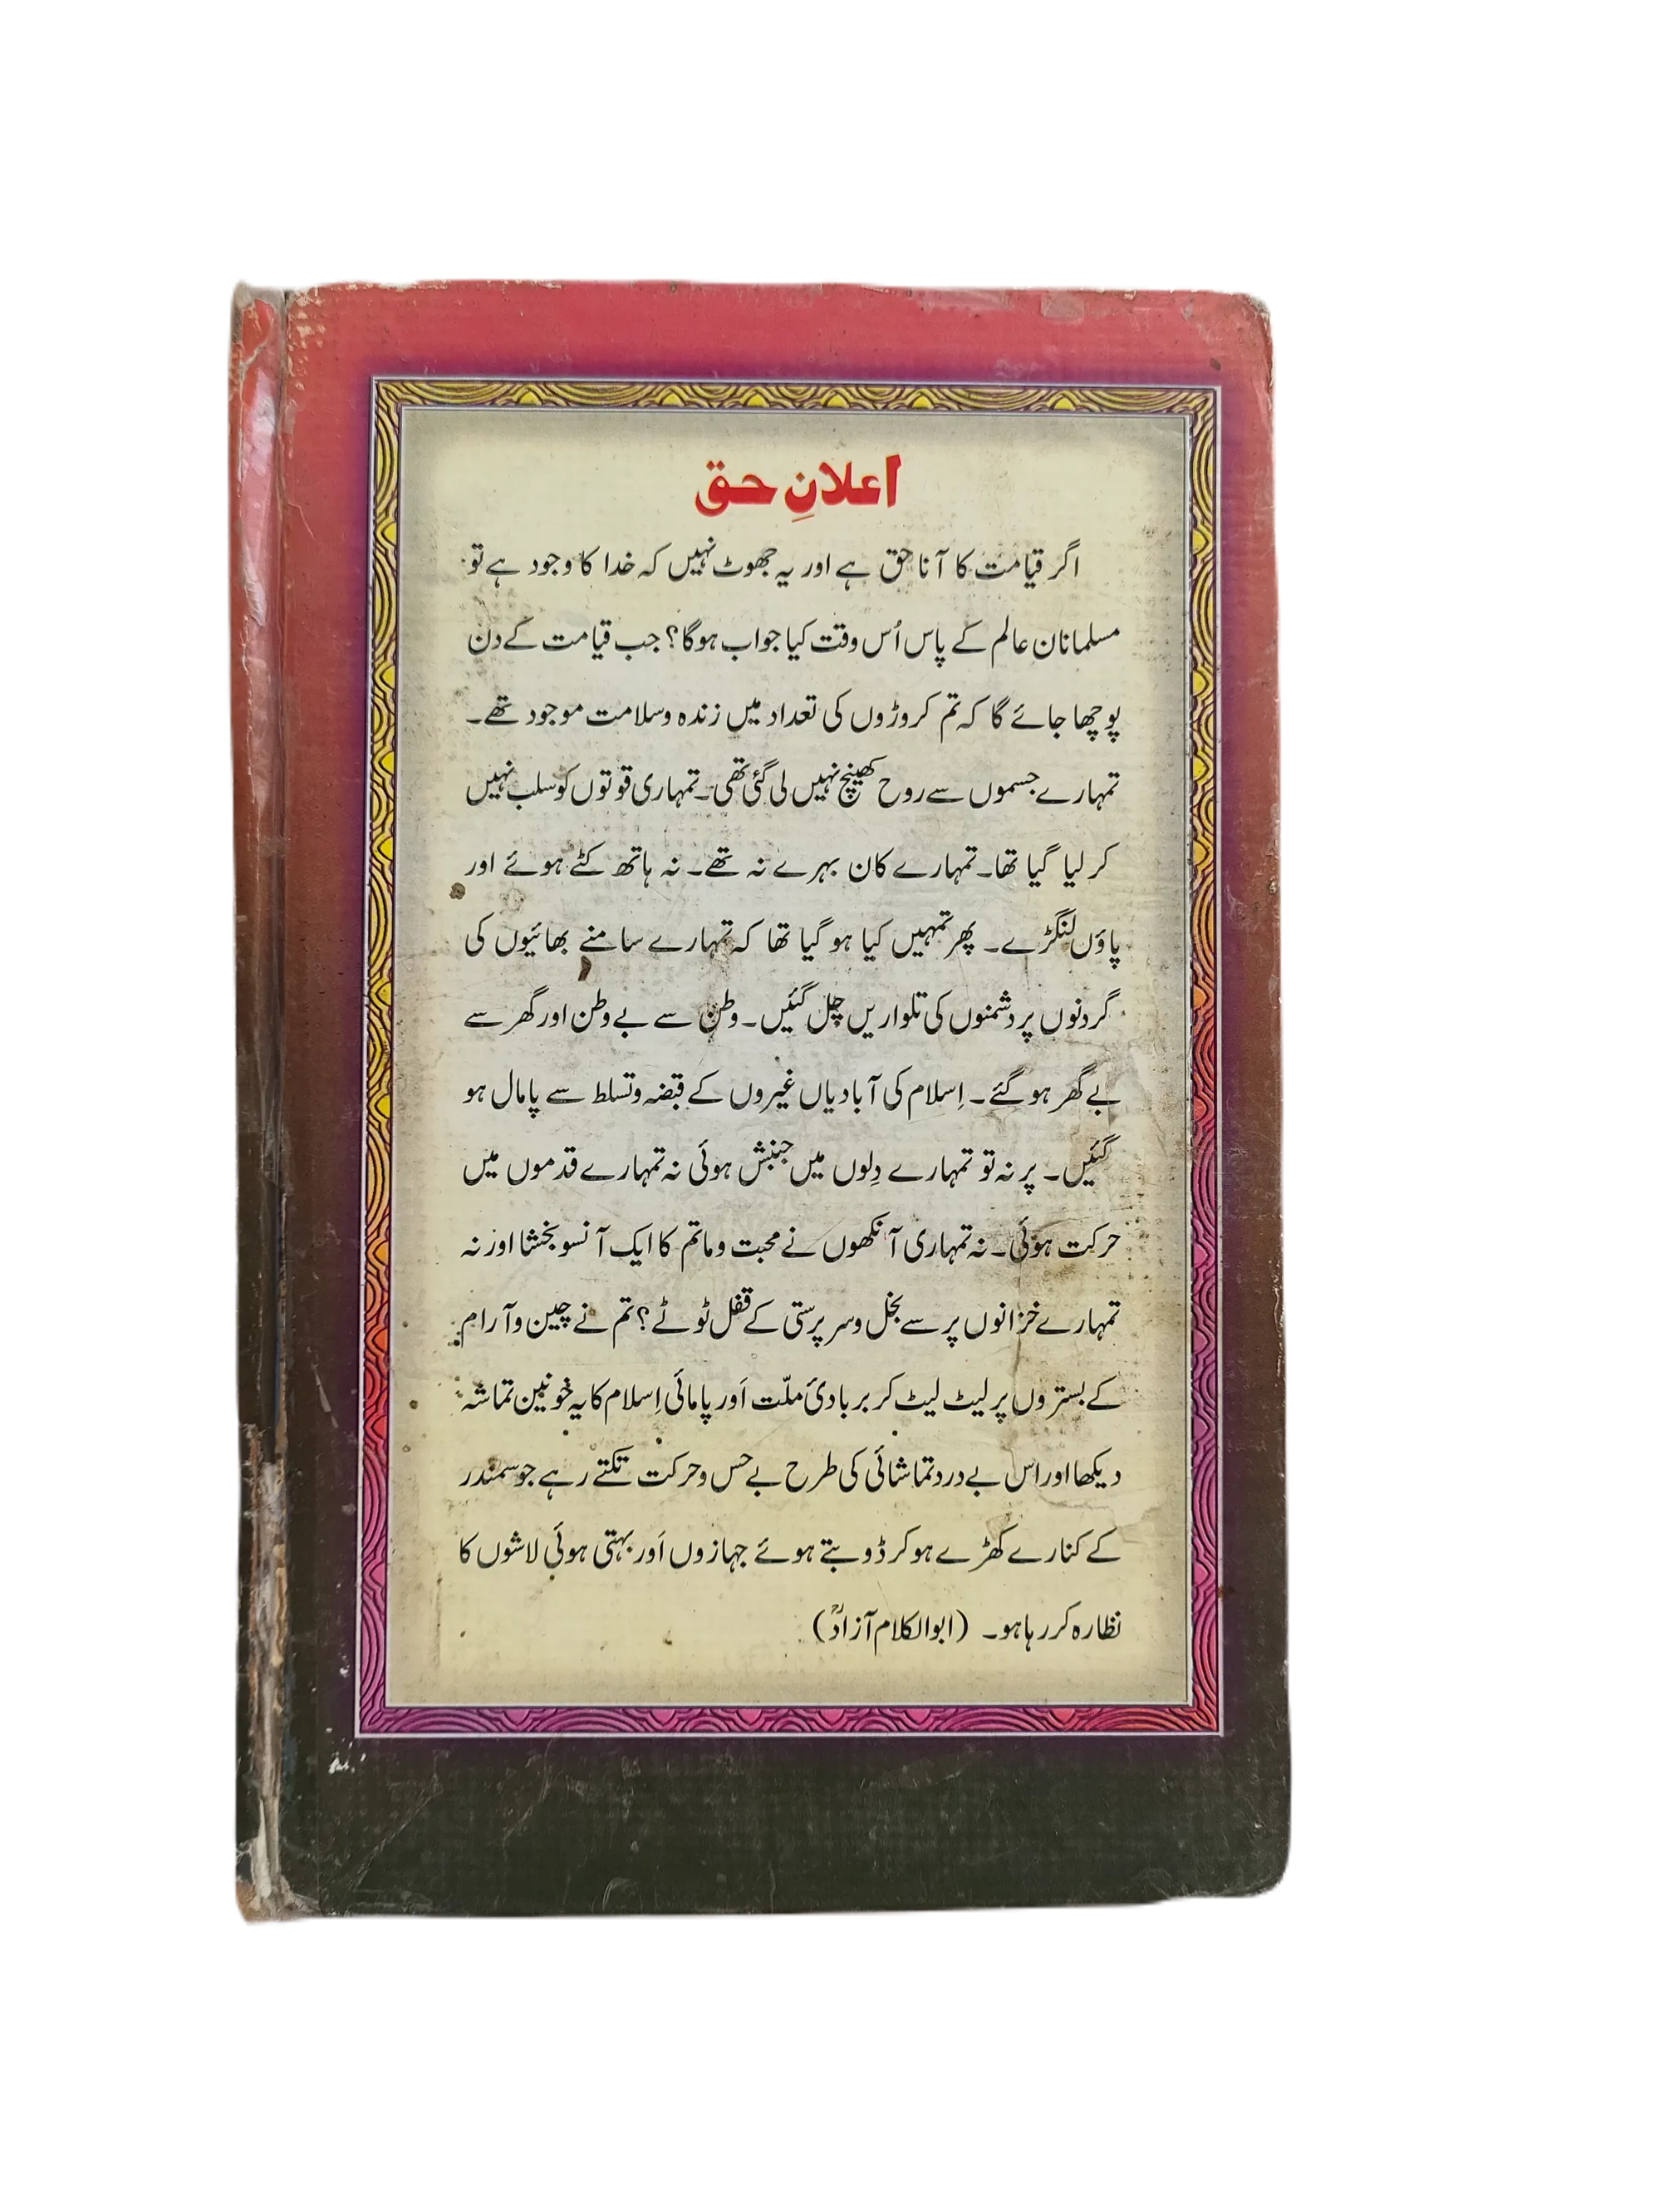 اعلانِ حق
اگر قیامت کا آنا حق ہے اور یہ جھوٹ نہیں کہ خدا کا وجود ہے تو
مسلمانان عالم کے پاس اُس وقت کیا جواب ہوگا؟ جب قیامت کے دن
پوچھا جائے گا کہ تم کروڑوں کی تعداد میں زندہ و سلامت موجود تھے۔
تمہارے جسموں سے روح کھینچ نہیں لی گئی تھی۔ تمہاری قوتوں کو سلب نہیں
کر لیا گیا تھا۔ تمہارے کان بہرے نہ تھے۔ نہ ہاتھ کٹے ہوئے اور
پاؤں لنگڑے۔ پھر تمہیں کیا ہو گیا تھا کہ تمہارے سامنے بھائیوں کی
گردنوں پر دشمنوں کی تلواریں چل گئیں۔ وطن سے بے وطن اور گھر سے
بے گھر ہو گئے۔ اِسلام کی آبادیاں غیروں کے قبضہ و تسلط سے پامال ہو
گئیں۔ پر نہ تو تمہارے دِلوں میں جنبش ہوئی نہ تمہارے قدموں میں
حرکت ہوئی۔ نہ تمہاری آنکھوں نے محبت و ماتم کا ایک آنسو بخشا اور نہ
تمہارے خزانوں پر سے بخل و سر پرستی کے قفل ٹوٹے؟ تم نے چین و آرام
کے بستروں پر لیٹ لیٹ کر بربادیٔ ملّت اَور پامائی اِسلام کا یہ خونین تماشہ
دیکھا اور اس بے درد تماشائی کی طرح بے حس و حرکت تکتے رہے جو سمندر
کے کنارے کھڑے ہو کر ڈوبتے ہوئے جہازوں اَور بہتی ہوئی لاشوں کا
نظارہ کر رہا ہو۔ (ابوالکلام آزادؒ)